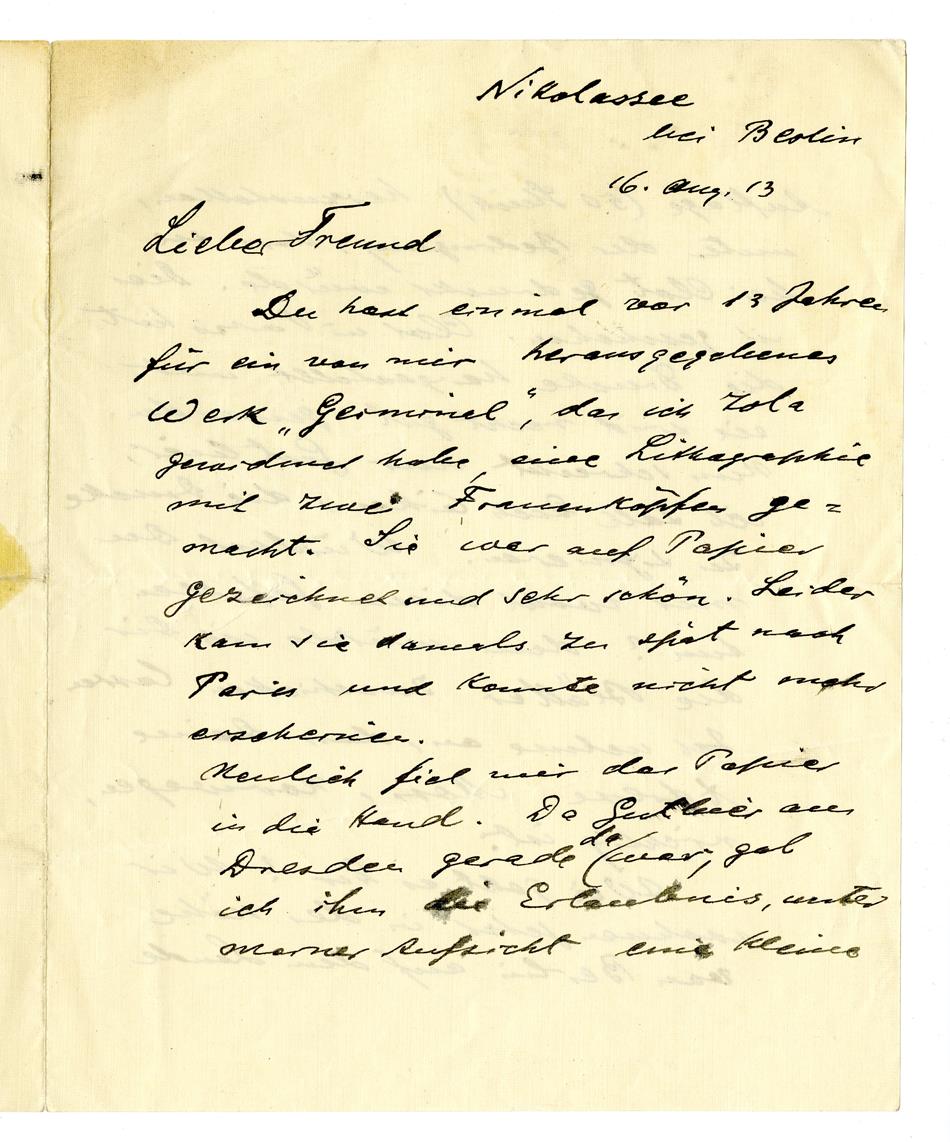 Nikolassee
bei Berlin
16. Aug. 13
Lieber Freund
Du hast einmal vor 13 Jahren
für ein von mir herausgegebenes
Werk „Germinal“, das ich Zola
gewidmet habe, eine Lithographie
mit zwei Frauenköpfen ge=
macht. Sie war auf Papier
gezeichnet und sehr schön. Leider
kam sie damals zu spät nach
Paris und konnte nicht mehr
erscheinen.
Neulich fiel mir das Papier
in die Hand. Da Gutbier aus
Dresden gerade da war, gab
ich ihm die Erlaubnis, unter
meiner Aufsicht eine kleine